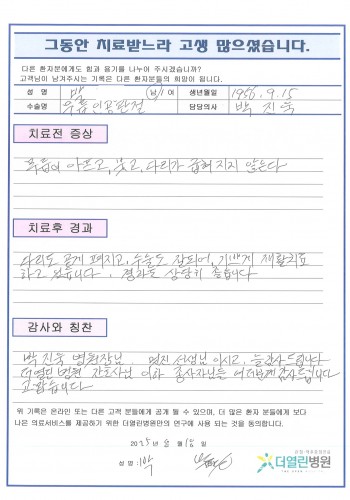 그동안 치료받느라 고생 많으셨습니다.
다른 환자분에게도 힘과 용기를 나누어 주시겠습니까?
고객님이 남겨주시는 기록은 다른 환자분들의 희망이 됩니다.
성 명 박 남/여 생년월일 1956.9.15
수술명 무릎인공관절 담당의사 박진욱
치료전 증상
무릎이 아프고, 붓고, 다리가 굽혀지지 않는다
치료후 경과
다리도 곧게 펴지고, 수술도 잘되어, 기쁘게 재활치료
하고 있습니다. 경과도 상당히 좋습니다
감사와 칭찬
박진욱 병원장님, 선생님 늘 감사드립니다
더열린병원 간호사님 이하 종사자님들 감사드립니다
고맙습니다
위 기록은 온라인 또는 다른 고객 분들에게 공개 될 수 있으며, 더 많은 환자 분들에게 보다
나은 의료서비스를 제공하기 위한 더열린병원만의 연구에 사용 되는 것을 동의합니다.
2025년 월 18일
성명 : 박
더열린병원